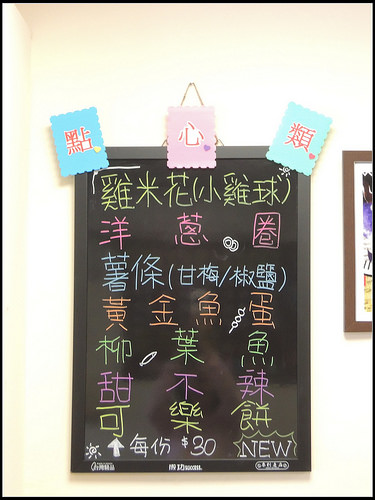 點心類
雞米花(小雞球)
洋蔥圈
薯條(甘梅/椒鹽)
黃金魚蛋
柳葉魚
甜不辣
可樂餅
每份 $30 NEW
成功 SUCCESS.